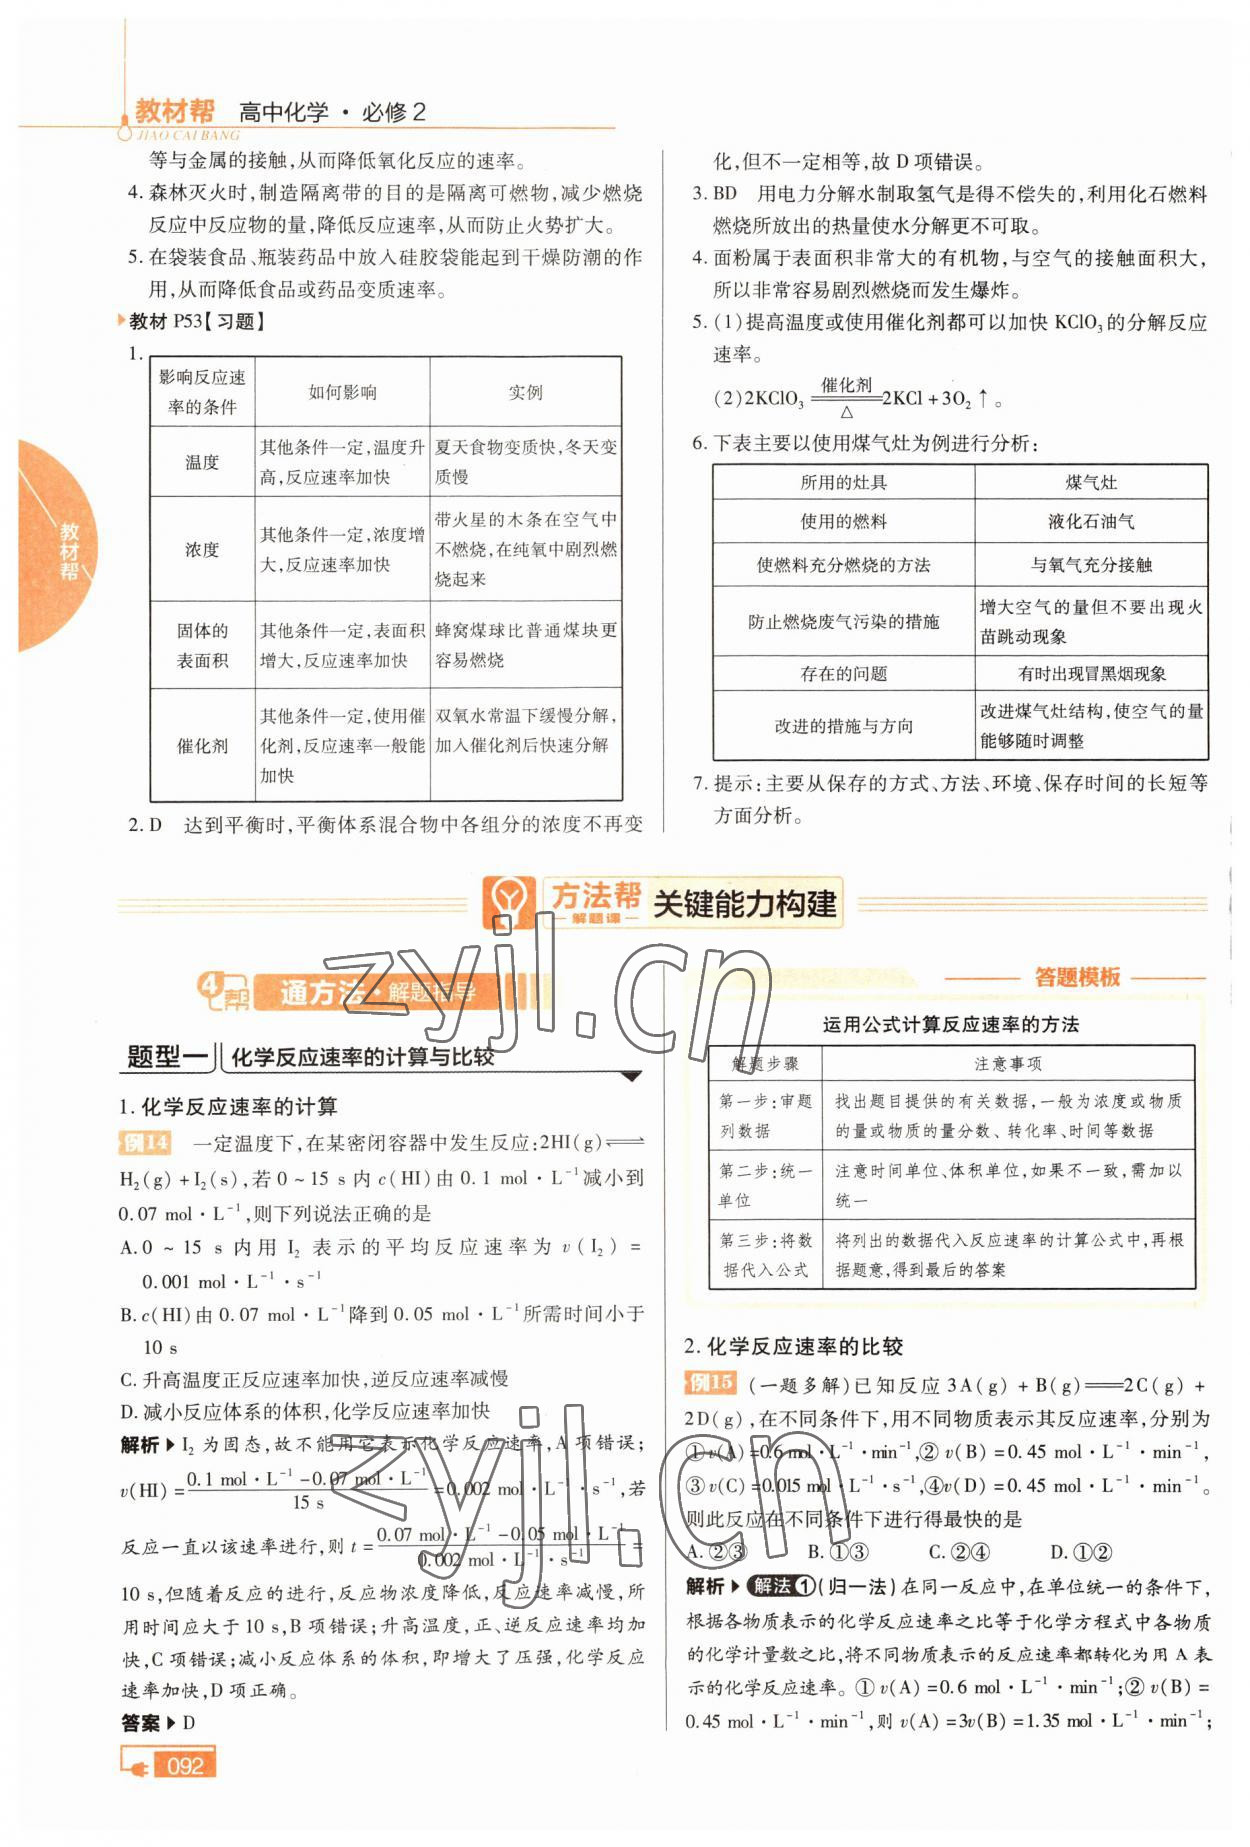 教材帮 高中化学·必修2
JIAO CAI BANG
等与金属的接触,从而降低氧化反应的速率。
4. 森林灭火时,制造隔离带的目的是隔离可燃物,减少燃烧
反应中反应物的量,降低反应速率,从而防止火势扩大。
5. 在袋装食品、瓶装药品中放入硅胶袋能起到干燥防潮的作
用,从而降低食品或药品变质速率。
教材 P53【习题】
1.
影响反应速率的条件 如何影响 实例
温度 其他条件一定,温度升高,反应速率加快 夏天食物变质快,冬天变质慢
浓度 其他条件一定,浓度增大,反应速率加快 带火星的木条在空气中不燃烧,在纯氧中剧烈燃烧起来
固体的表面积 其他条件一定,表面积增大,反应速率加快 蜂窝煤球比普通煤块更容易燃烧
催化剂 其他条件一定,使用催化剂,反应速率一般能加快 双氧水常温下缓慢分解,加入催化剂后快速分解
2. D 达到平衡时,平衡体系混合物中各组分的浓度不再变
化,但不一定相等,故 D 项错误。
3. BD 用电力分解水制取氢气是得不偿失的,利用化石燃料
燃烧所放出的热量使水分解更不可取。
4. 面粉属于表面积非常大的有机物,与空气的接触面积大,
所以非常容易剧烈燃烧而发生爆炸。
5. (1)提高温度或使用催化剂都可以加快 KClO₃ 的分解反应
速率。
(2)2KClO₃ ═催化剂/△═ 2KCl + 3O₂↑。
6. 下表主要以使用煤气灶为例进行分析:
所用的灶具 煤气灶
使用的燃料 液化石油气
使燃料充分燃烧的方法 与氧气充分接触
防止燃烧废气污染的措施 增大空气的量但不要出现火苗跳动现象
存在的问题 有时出现冒黑烟现象
改进的措施与方向 改进煤气灶结构,使空气的量能够随时调整
7. 提示:主要从保存的方式、方法、环境、保存时间的长短等
方面分析。
教材帮
方法帮 解题课 关键能力构建
4帮 通方法·解题指导
题型一 化学反应速率的计算与比较
1. 化学反应速率的计算
例14 一定温度下,在某密闭容器中发生反应:2HI(g)⇌
H₂(g)+I₂(s),若 0~15 s 内 c(HI)由 0.1 mol·L⁻¹减小到
0.07 mol·L⁻¹,则下列说法正确的是
A. 0~15 s 内用 I₂ 表示的平均反应速率为 v(I₂)=
0.001 mol·L⁻¹·s⁻¹
B. c(HI)由 0.07 mol·L⁻¹降到 0.05 mol·L⁻¹所需时间小于
10 s
C. 升高温度正反应速率加快,逆反应速率减慢
D. 减小反应体系的体积,化学反应速率加快
解析▶I₂ 为固态,故不能用它表示化学反应速率,A 项错误;
v(HI)=(0.1 mol·L⁻¹-0.07 mol·L⁻¹)/15 s=0.002 mol·L⁻¹·s⁻¹,若
反应一直以该速率进行,则 t=(0.07 mol·L⁻¹-0.05 mol·L⁻¹)/(0.002 mol·L⁻¹·s⁻¹)=
10 s,但随着反应的进行,反应物浓度降低,反应速率减慢,所
用时间应大于 10 s,B 项错误;升高温度,正、逆反应速率均加
快,C 项错误;减小反应体系的体积,即增大了压强,化学反应
速率加快,D 项正确。
答案▶D
092
答题模板
运用公式计算反应速率的方法
解题步骤 注意事项
第一步:审题列数据 找出题目提供的有关数据,一般为浓度或物质的量或物质的量分数、转化率、时间等数据
第二步:统一单位 注意时间单位、体积单位,如果不一致,需加以统一
第三步:将数据代入公式 将列出的数据代入反应速率的计算公式中,再根据题意,得到最后的答案
2. 化学反应速率的比较
例15 (一题多解)已知反应 3A(g)+B(g)══2C(g)+
2D(g),在不同条件下,用不同物质表示其反应速率,分别为
①v(A)=0.6 mol·L⁻¹·min⁻¹,②v(B)=0.45 mol·L⁻¹·min⁻¹,
③v(C)=0.015 mol·L⁻¹·s⁻¹,④v(D)=0.45 mol·L⁻¹·min⁻¹。
则此反应在不同条件下进行得最快的是
A. ②③ B. ①③ C. ②④ D. ①②
解析▶解法1(归一法)在同一反应中,在单位统一的条件下,
根据各物质表示的化学反应速率之比等于化学方程式中各物质
的化学计量数之比,将不同物质表示的反应速率都转化为用 A 表
示的化学反应速率。①v(A)=0.6 mol·L⁻¹·min⁻¹;②v(B)=
0.45 mol·L⁻¹·min⁻¹,则 v(A)=3v(B)=1.35 mol·L⁻¹·min⁻¹;
zyjl.cn
zyjl.cn